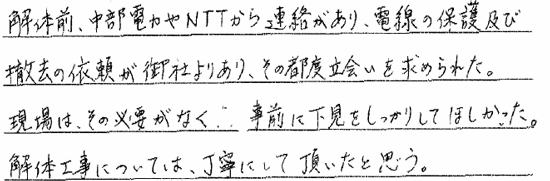 解体前、中部電力やNTTから連絡があり、電線の保護及び
撤去の依頼が御社よりあり、その都度立会いを求められた。
現場は、その必要がなく∴事前に下見をしっかりしてほしかった。
解体工事については、丁寧にして頂いたと思う。